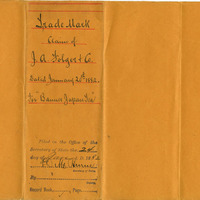 Trade Mark
Claim of
J. A. Folger & Co.
Dated January 20th 1882
For "Banner Japan Tea"
Filed in the Office of the
Secretary of State the 24
day of A.D. 188
Secretary of State
By
Record Book Page